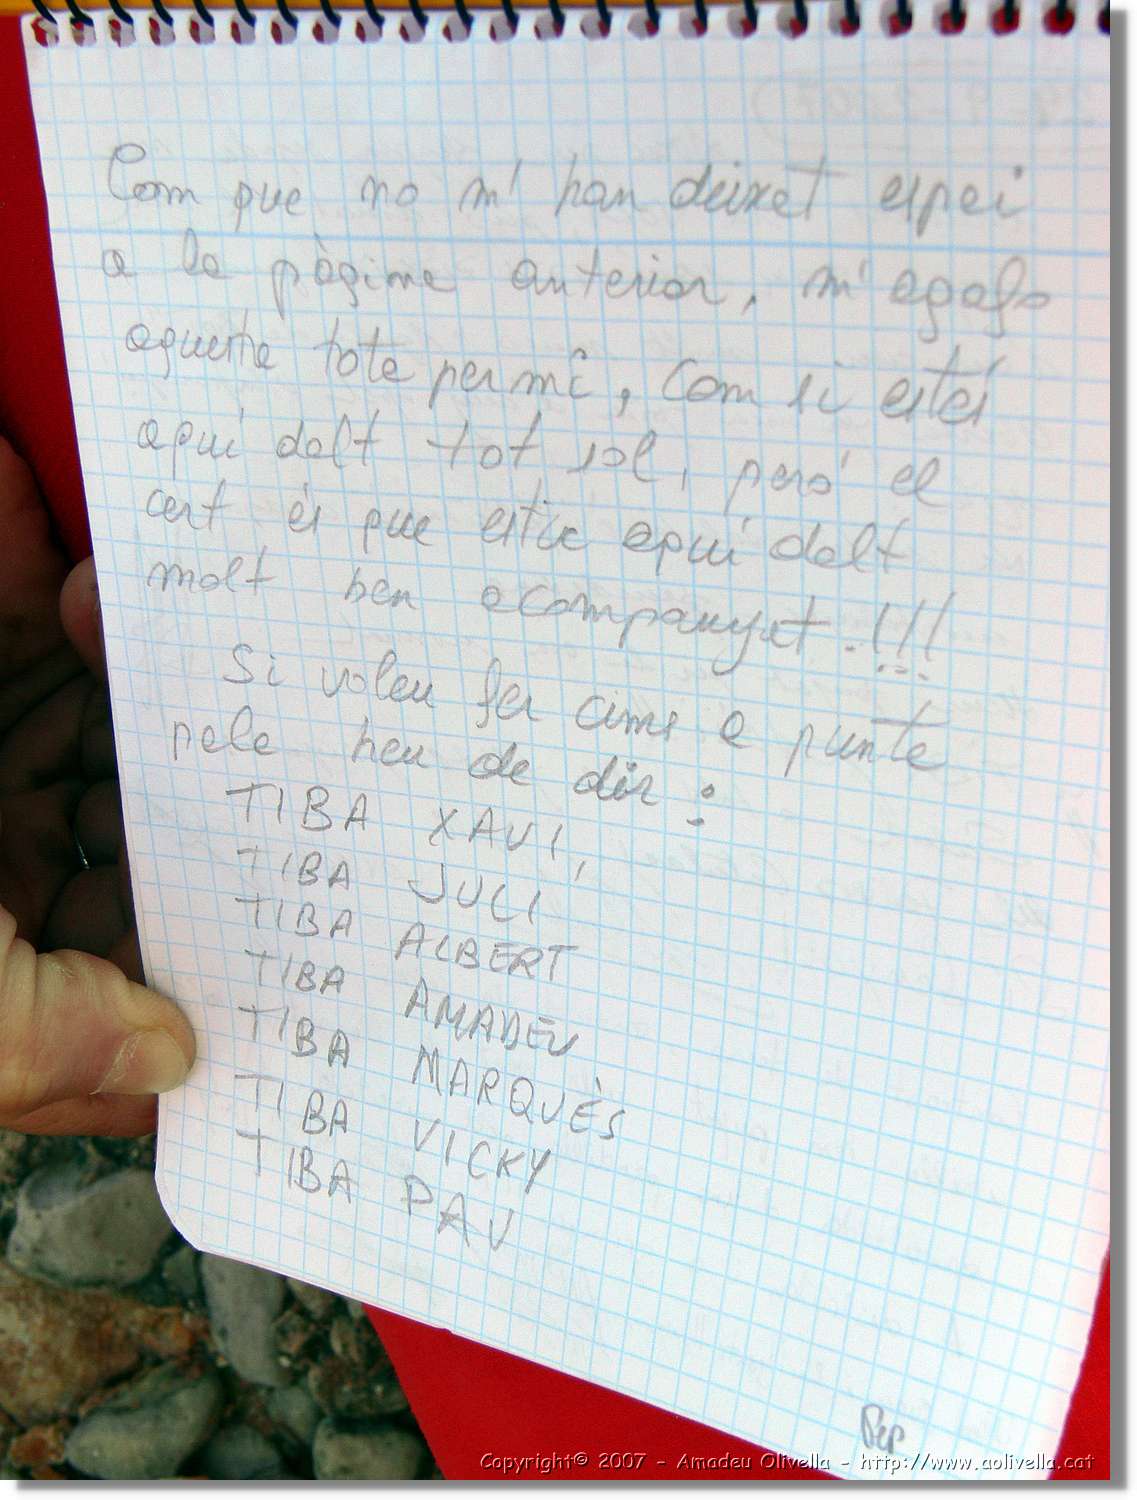 Com que no m'han deixat espai
a la pàgina anterior, m'agafo
aquesta tota per mi, com si estés
aquí dalt tot sol, però el
cert és que estic aquí dalt
molt ben acompanyat.!!!
Si voleu fer cims a punta
pala heu de dir:
TIBA XAVI,
TIBA JULI
TIBA ALBERT
TIBA AMADEU
TIBA MARQUÈS
TIBA VICKY
TIBA PAU
Pep
Copyright© 2007 - Amadeu Olivella - http://www.aolivella.cat